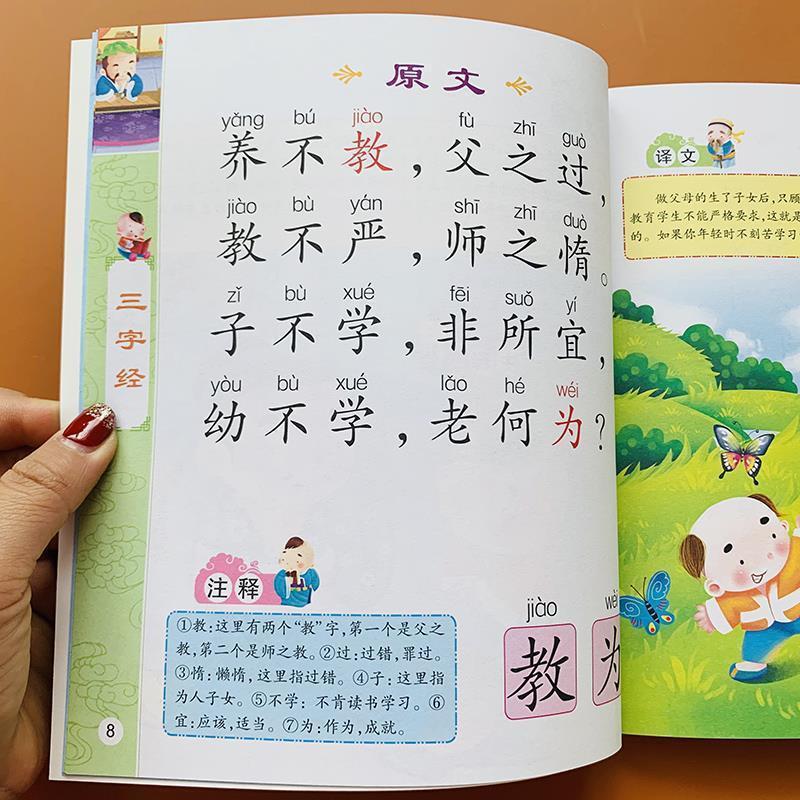 三字经
原文
yǎng bú jiào fù zhī guò
养不教，父之过，
jiào bù yán shī zhī duò
教不严，师之惰。
zǐ bù xué fēi suǒ yí
子不学，非所宜，
yòu bù xué lǎo hé wéi
幼不学，老何为？
注释
①教：这里有两个“教”字，第一个是父之
教，第二个是师之教。②过：过错，罪过。
③惰：懒惰，这里指过错。④子：这里指
为人子女。⑤不学：不肯读书学习。⑥
宜：应该，适当。⑦为：作为，成就。
jiào
教 为
8
译文
做父母的生了子女后，只顾
教育学生不能严格要求，这就是
的。如果你年轻时不刻苦学习